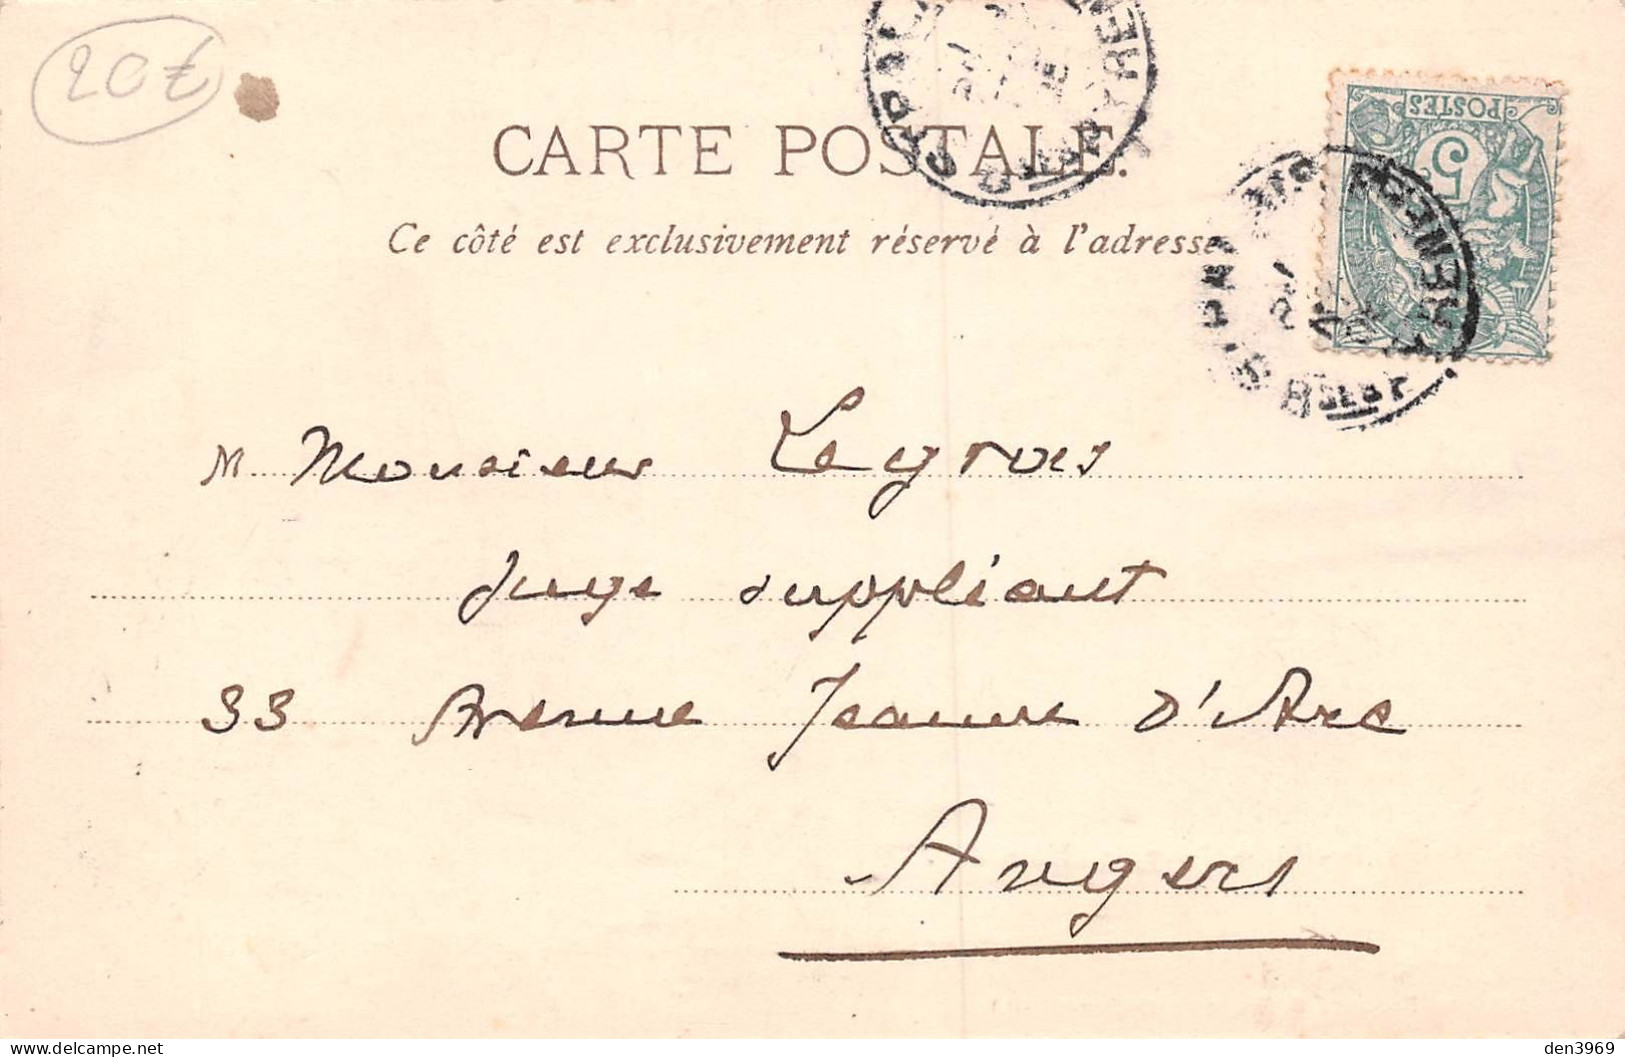 20€
CARTE POSTALE.
Ce côté est exclusivement réservé à l'adresse
POSTES
5
M Monsieur Legrous
Juge suppléant
33 Avenue Jeanne D'Arc
Angers
den3969